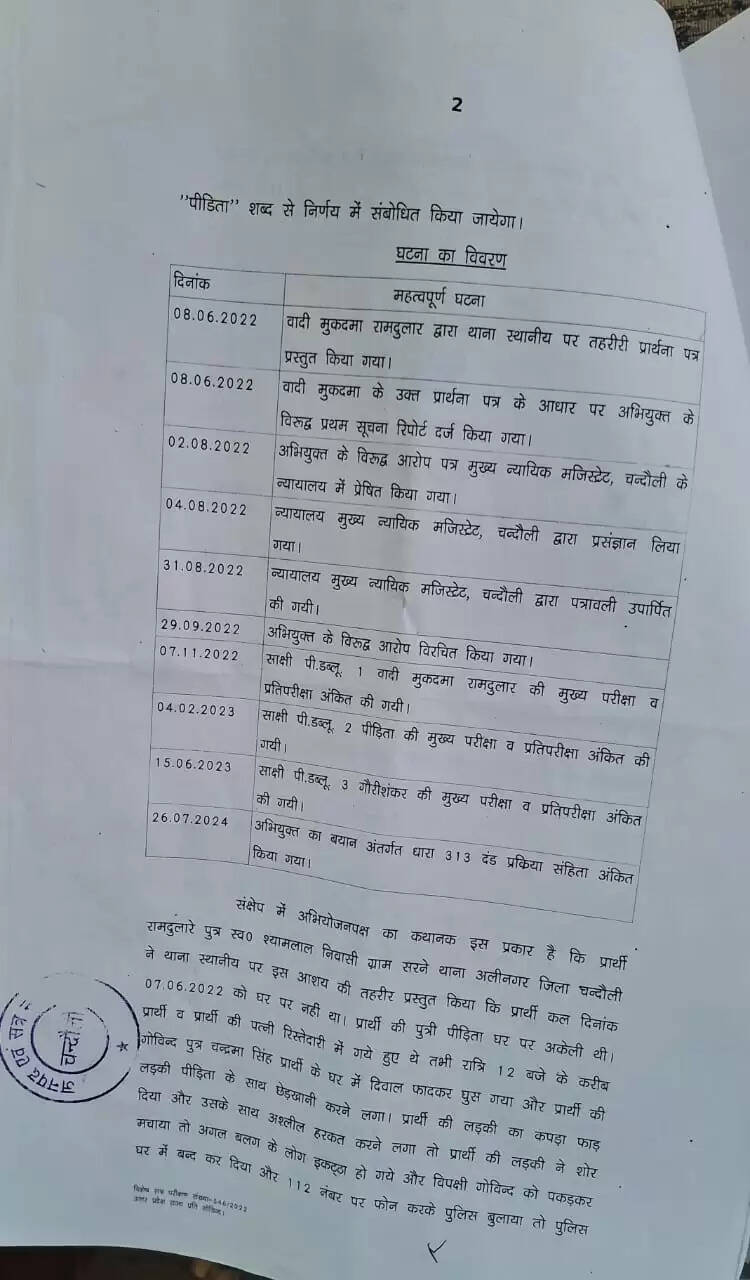 2
’’पीडिता’’ शब्द से निर्णय में संबोधित किया जायेगा।
घटना का विवरण
दिनांक महत्वपूर्ण घटना
08.06.2022 वादी मुकदमा रामदुलार द्वारा थाना स्थानीय पर तहरीरी प्रार्थना पत्र
प्रस्तुत किया गया।
08.06.2022 वादी मुकदमा के उक्त प्रार्थना पत्र के आधार पर अभियुक्त के
विरूद्व प्रथम सूचना रिपोर्ट दर्ज किया गया।
02.08.2022 अभियुक्त के विरूद्व आरोप पत्र मुख्य न्यायिक मजिस्ट्रेट, चन्दौली के
न्यायालय में प्रेषित किया गया।
04.08.2022 न्यायालय मुख्य न्यायिक मजिस्ट्रेट, चन्दौली द्वारा प्रसंज्ञान लिया
गया।
31.08.2022 न्यायालय मुख्य न्यायिक मजिस्ट्रेट, चन्दौली द्वारा पत्रावली उपार्पित
की गयी।
29.09.2022 अभियुक्त के विरूद्व आरोप विरचित किया गया।
07.11.2022 साक्षी पी.डब्लू. 1 वादी मुकदमा रामदुलार की मुख्य परीक्षा व
प्रतिपरीक्षा अंकित की गयी।
04.02.2023 साक्षी पी.डब्लू. 2 पीड़िता की मुख्य परीक्षा व प्रतिपरीक्षा अंकित की
गयी।
15.06.2023 साक्षी पी.डब्लू. 3 गौरीशंकर की मुख्य परीक्षा व प्रतिपरीक्षा अंकित
की गयी।
26.07.2024 अभियुक्त का बयान अंतर्गत धारा 313 दंड प्रकिया संहिता अंकित
किया गया।
संक्षेप में अभियोजनपक्ष का कथानक इस प्रकार है कि प्रार्थी
रामदुलारे पुत्र स्व0 श्यामलाल निवासी ग्राम सरने थाना अलीनगर जिला चन्दौली
ने थाना स्थानीय पर इस आशय की तहरीर प्रस्तुत किया कि प्रार्थी कल दिनांक
07.06.2022 को घर पर नही था। प्रार्थी की पुत्री पीड़िता घर पर अकेली थी।
प्रार्थी व प्रार्थी की पत्नी रिस्तेदारी में गये हुए थे तभी रात्रि 12 बजे के करीब
गोविन्द पुत्र चन्द्रमा सिंह प्रार्थी के घर में दिवाल फादकर घुस गया और प्रार्थी की
लड़की पीड़िता के साथ छेड़खानी करने लगा। प्रार्थी की लड़की का कपड़ा फाड़
दिया और उसके साथ अश्लील हरकत करने लगा तो प्रार्थी की लड़की ने शोर
मचाया तो अगल बलग के लोग इकट्ठा हो गये और विपक्षी गोविन्द को पकड़कर
घर में बन्द कर दिया और 112 नंबर पर फोन करके पुलिस बुलाया तो पुलिस
विशेष सत्र परीक्षण संख्या-546/2022
उत्तर प्रदेश राज्य प्रति गोविन्द।
जनपद एवं सत्र
चन्दौली